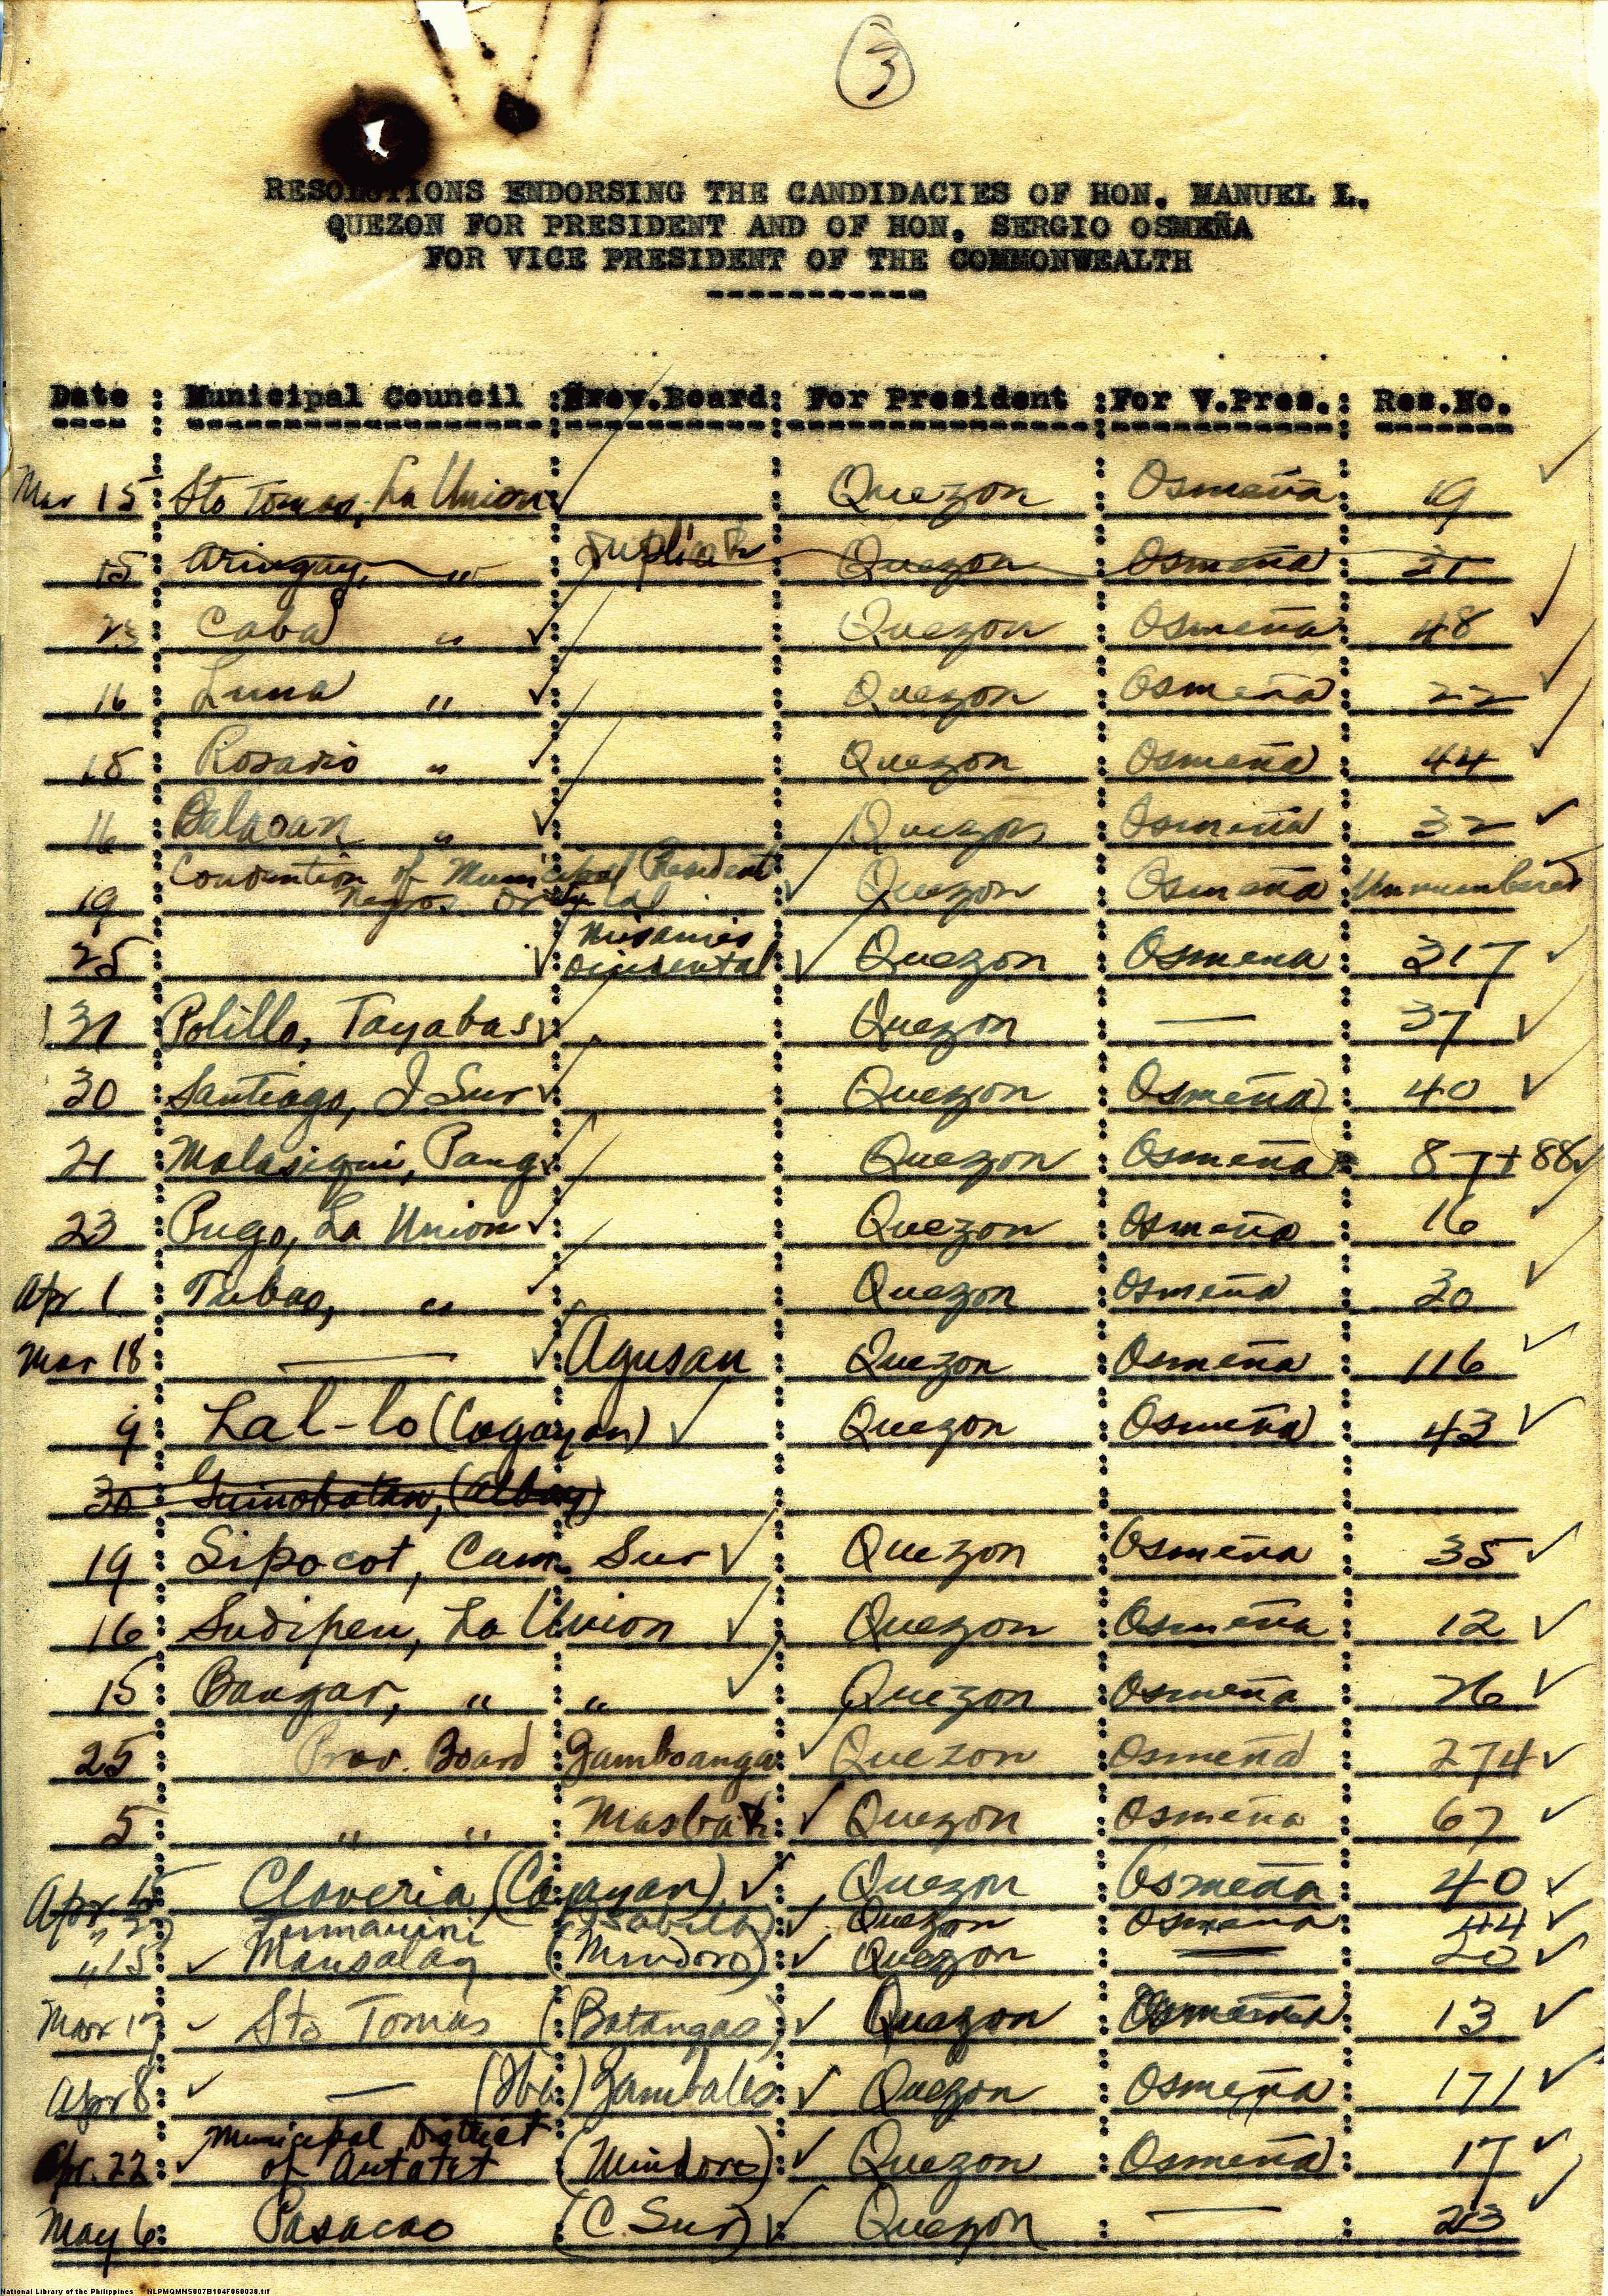 3
RESOLUTIONS ENDORSING THE CANDIDACIES OF HON. MANUEL L.
QUEZON FOR PRESIDENT AND OF HON. SERGIO OSMEÑA
FOR VICE PRESIDENT OF THE COMMONWEALTH
Date : Municipal Council : Prov.Board: For President : For V.Pres.: Res.No.
Mar 15 Sto Tomas, La Union Quezon Osmeña 19
15 Aringay, " Duplicate Quezon Osmeña 21
23 Caba " Quezon Osmeña 48
16 Luna " Quezon Osmeña 22
18 Rosario " Quezon Osmeña 44
16 Balaoan " Quezon Osmeña 32
Convention of Municipal President
19 Negros Oriental Quezon Osmeña Unnumbered
Misamis
25 Occidental Quezon Osmena 317
31 Polillo, Tayabas Quezon — 37
30 Santiago, I. Sur Quezon Osmeña 40
21 Malasiqui, Pang Quezon Osmeña 87+88
23 Pugo, La Union Quezon Osmeña 16
Apr 1 Tubao, " Quezon Osmeña 30
Mar 18 — Agusan Quezon Osmeña 116
9 Lal-lo (Cagayan) Quezon Osmeña 43
30 Guinobatan, (Albay)
19 Sipocot, Cam. Sur Quezon Osmeña 35
16 Sudipen, La Union Quezon Osmeña 12
15 Bangar, " " Quezon Osmeña 26
25 Prov. Board Zamboanga Quezon Osmeña 274
5 " " Masbate Quezon Osmeña 67
Apr Claveria (Cagayan) Quezon Osmeña 40
" Tumauini (Isabela) Quezon Osmeña 44
" 15 Mansalay (Mindoro) Quezon — 20
Mar 17 Sto Tomas (Batangas) Quezon Osmeña 13
Apr 8 — (Iba) Zambales Quezon Osmeña 171
Municipal District
Apr. 22 of (Mindoro) Quezon Osmeña 17
May 6 Pasacao (C. Sur) Quezon — 23
National Library of the Philippines NLPMQMNS007B104F060038.tif